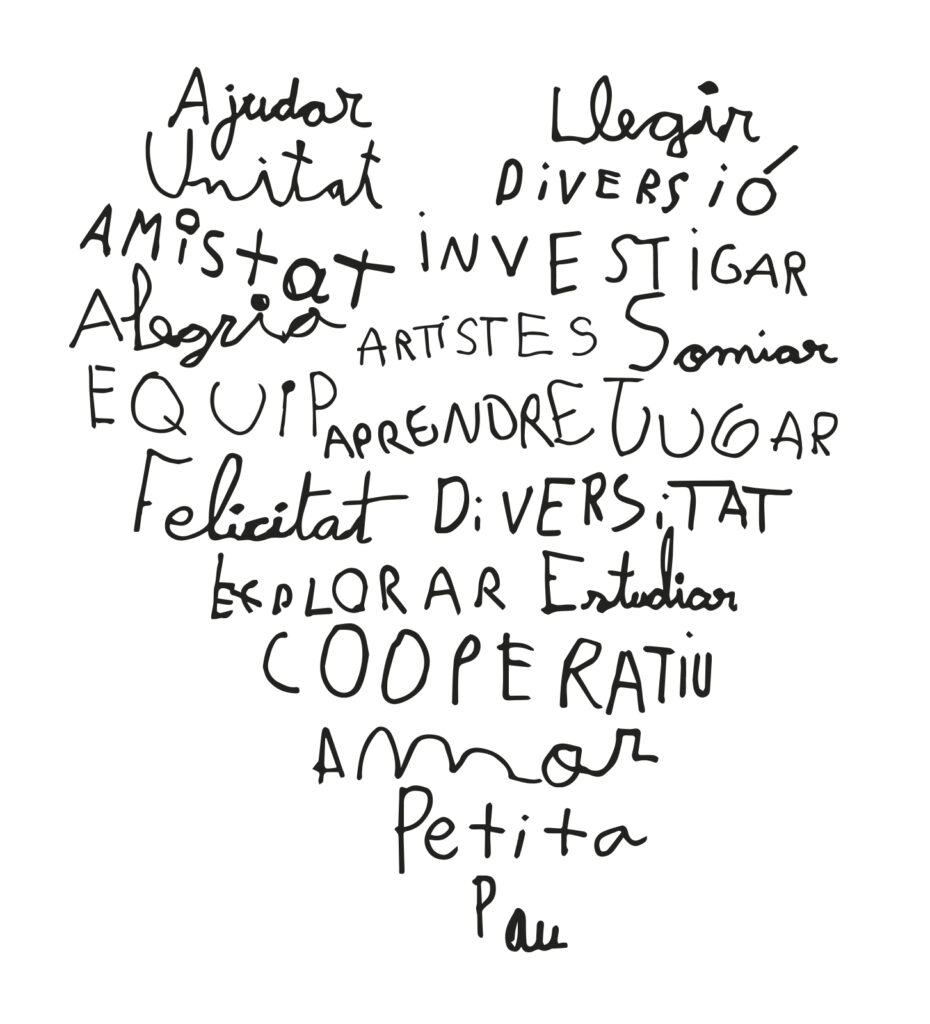 Ajudar Llegir
Unitat DiVERSiÓ
AMiStat iNVESTiGAR
Alegria ARTiSTES Somiar
EQUiP APRENDRE JUGAR
Felicitat DiVERSiTAT
EXPLORAR Estudiar
COOPERATiU
Amor
Petita
Pau